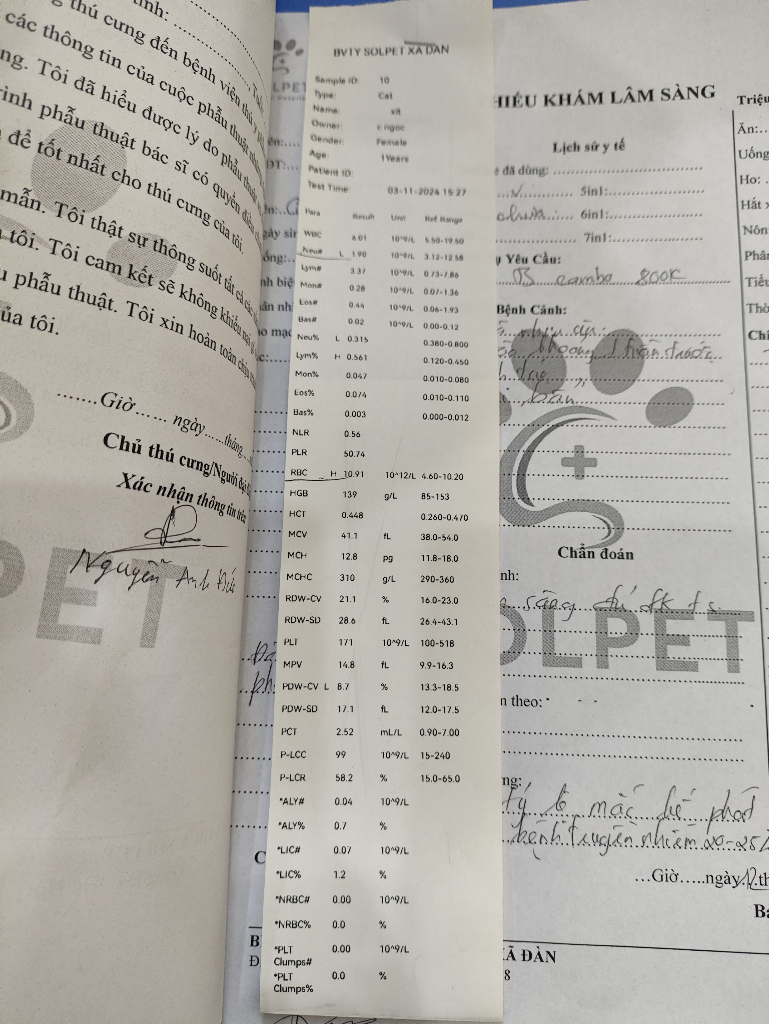 thú cưng đến bệnh viện thú y
các thông tin của cuộc phẫu thuật
ng. Tôi đã hiểu được lý do phẫu thuật
rình phẫu thuật bác sĩ có quyền
để tốt nhất cho thú cưng của tôi.
mẫn. Tôi thật sự thông suốt tất cả các
tôi. Tôi cam kết sẽ không khiếu nại
phẫu thuật. Tôi xin hoàn toàn chịu
ủa tôi.
.......Giờ...... ngày......tháng
Chủ thú cưng/Người đại
Xác nhận thông tin trên
Nguyễn Anh Đức
PET
BVTY SOLPET XA DAN
Sample ID: 10
Type: Cat
Name: vit
Owner: c ngoc
Gender: Female
Age: 1Years
Patient ID:
Test Time: 03-11-2024 15:27
Para Result Unit Ref Range
WBC 6.01 10^9/L 5.50-19.50
Neu# L 1.90 10^9/L 3.12-12.58
Lym# 3.37 10^9/L 0.73-7.86
Mon# 0.28 10^9/L 0.07-1.36
Eos# 0.44 10^9/L 0.06-1.93
Bas# 0.02 10^9/L 0.00-0.12
Neu% L 0.315 0.380-0.800
Lym% H 0.561 0.120-0.450
Mon% 0.047 0.010-0.080
Eos% 0.074 0.010-0.110
Bas% 0.003 0.000-0.012
NLR 0.56
PLR 50.74
RBC H 10.91 10^12/L 4.60-10.20
HGB 139 g/L 85-153
HCT 0.448 0.260-0.470
MCV 41.1 fL 38.0-54.0
MCH 12.8 pg 11.8-18.0
MCHC 310 g/L 290-360
RDW-CV 21.1 % 16.0-23.0
RDW-SD 28.6 fL 26.4-43.1
PLT 171 10^9/L 100-518
MPV 14.8 fL 9.9-16.3
PDW-CV L 8.7 % 13.3-18.5
PDW-SD 17.1 fL 12.0-17.5
PCT 2.52 mL/L 0.90-7.00
P-LCC 99 10^9/L 15-240
P-LCR 58.2 % 15.0-65.0
*ALY# 0.04 10^9/L
*ALY% 0.7 %
*LIC# 0.07 10^9/L
*LIC% 1.2 %
*NRBC# 0.00 10^9/L
*NRBC% 0.0 %
*PLT 0.00 10^9/L
Clumps#
*PLT 0.0 %
Clumps%
HIẾU KHÁM LÂM SÀNG
Lịch sử y tế
đã dùng:
5in1:
6in1:
7in1:
Yêu Cầu:
combo 800K
Bệnh Cảnh:
Chẩn đoán
nh:
OLPET
n theo:
ng:
tỷ lệ mắc
bệnh truyền nhiễm 20-25
...Giờ.....ngày
XÃ ĐÀN
8
Triệu
Ăn:
Uống
Ho:
Hắt x
Nôn
Phân
Tiểu
Thờ